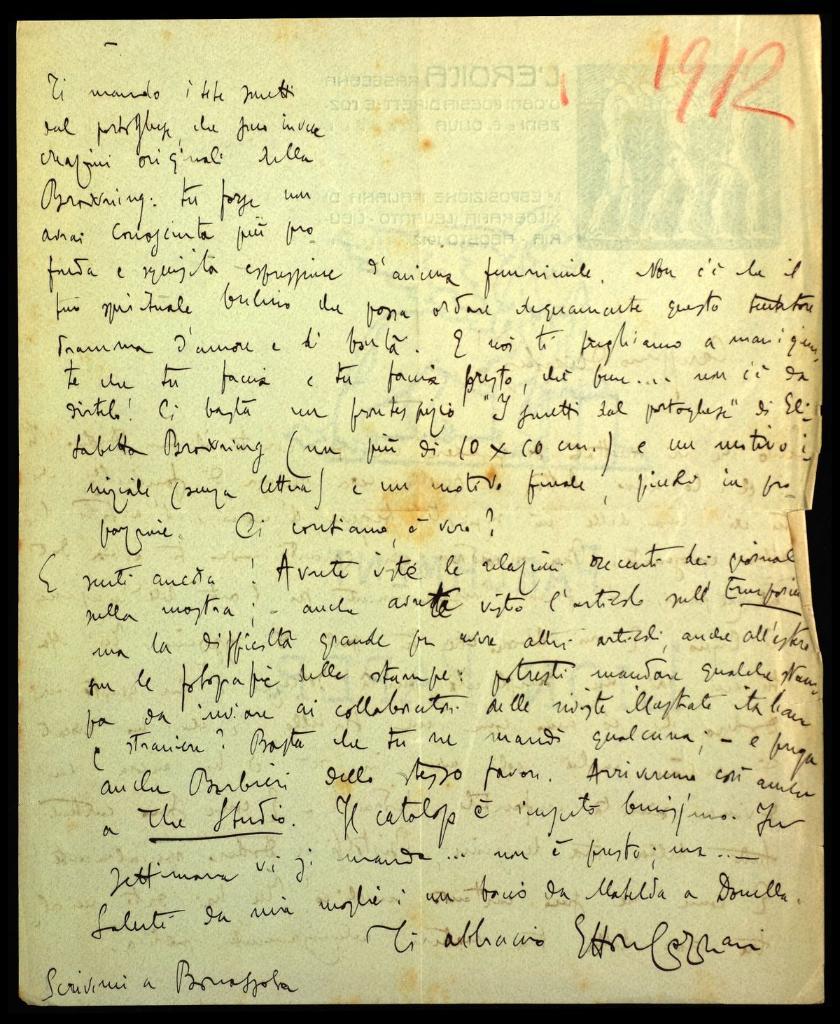 1912
Ti mando i sette sonetti
dal portoghese, che sono invece
creazioni originali della
Browning: tu forse non
avrai conosciuta più pro
fonda e squisita espressione d'anima femminile. Non c'è che il
tuo spirituale bulino che possa ornare degnamente questo
dramma d'amore e di bontà. E noi ti preghiamo a mani giun
te che tu faccia e tu faccia presto, chè bene.... non c'è da
dirtelo! Ci basta un frontespizio "I sonetti dal portoghese" di Eli
sabetta Browning (un più di 10 x 10 cm.) e un motivo i
niziale (senza lettera) e un motivo finale, piccoli in pro
porzione. Ci contiamo, è vero?
E senti ancora! Avrete viste le relazioni recenti dei giornal
sulla mostra; - anche avrete visto l'articolo sull'Emporium
ma la difficoltà grande per avere altri articoli, anche all'estero
son le fotografie delle stampe: potresti mandare qualche stam
pa da inviare ai collaboratori delle riviste illustrate italiane
e straniere? Basta che tu ne mandi qualcuna; - e prega
anche Barbieri dello stesso favore. Arriveremo così anche
a The Studio. Il catalogo è benissimo. In
settimana vi si manda ... non è presto; ma ...
Saluti da mia moglie; un bacio da Matilda a Donella.
Ti abbraccio Ettore Cozzani
Scrivimi a Bonassola
L'EROICA RASSEGNA
D'OGNI POESIA DIRETT. E. COZ-
ZANI E F. OLIVA
ESPOSIZIONE ITALIANA DI
XILOGRAFIA LEVANTO - LIGU-
RIA - AGOSTO 1912